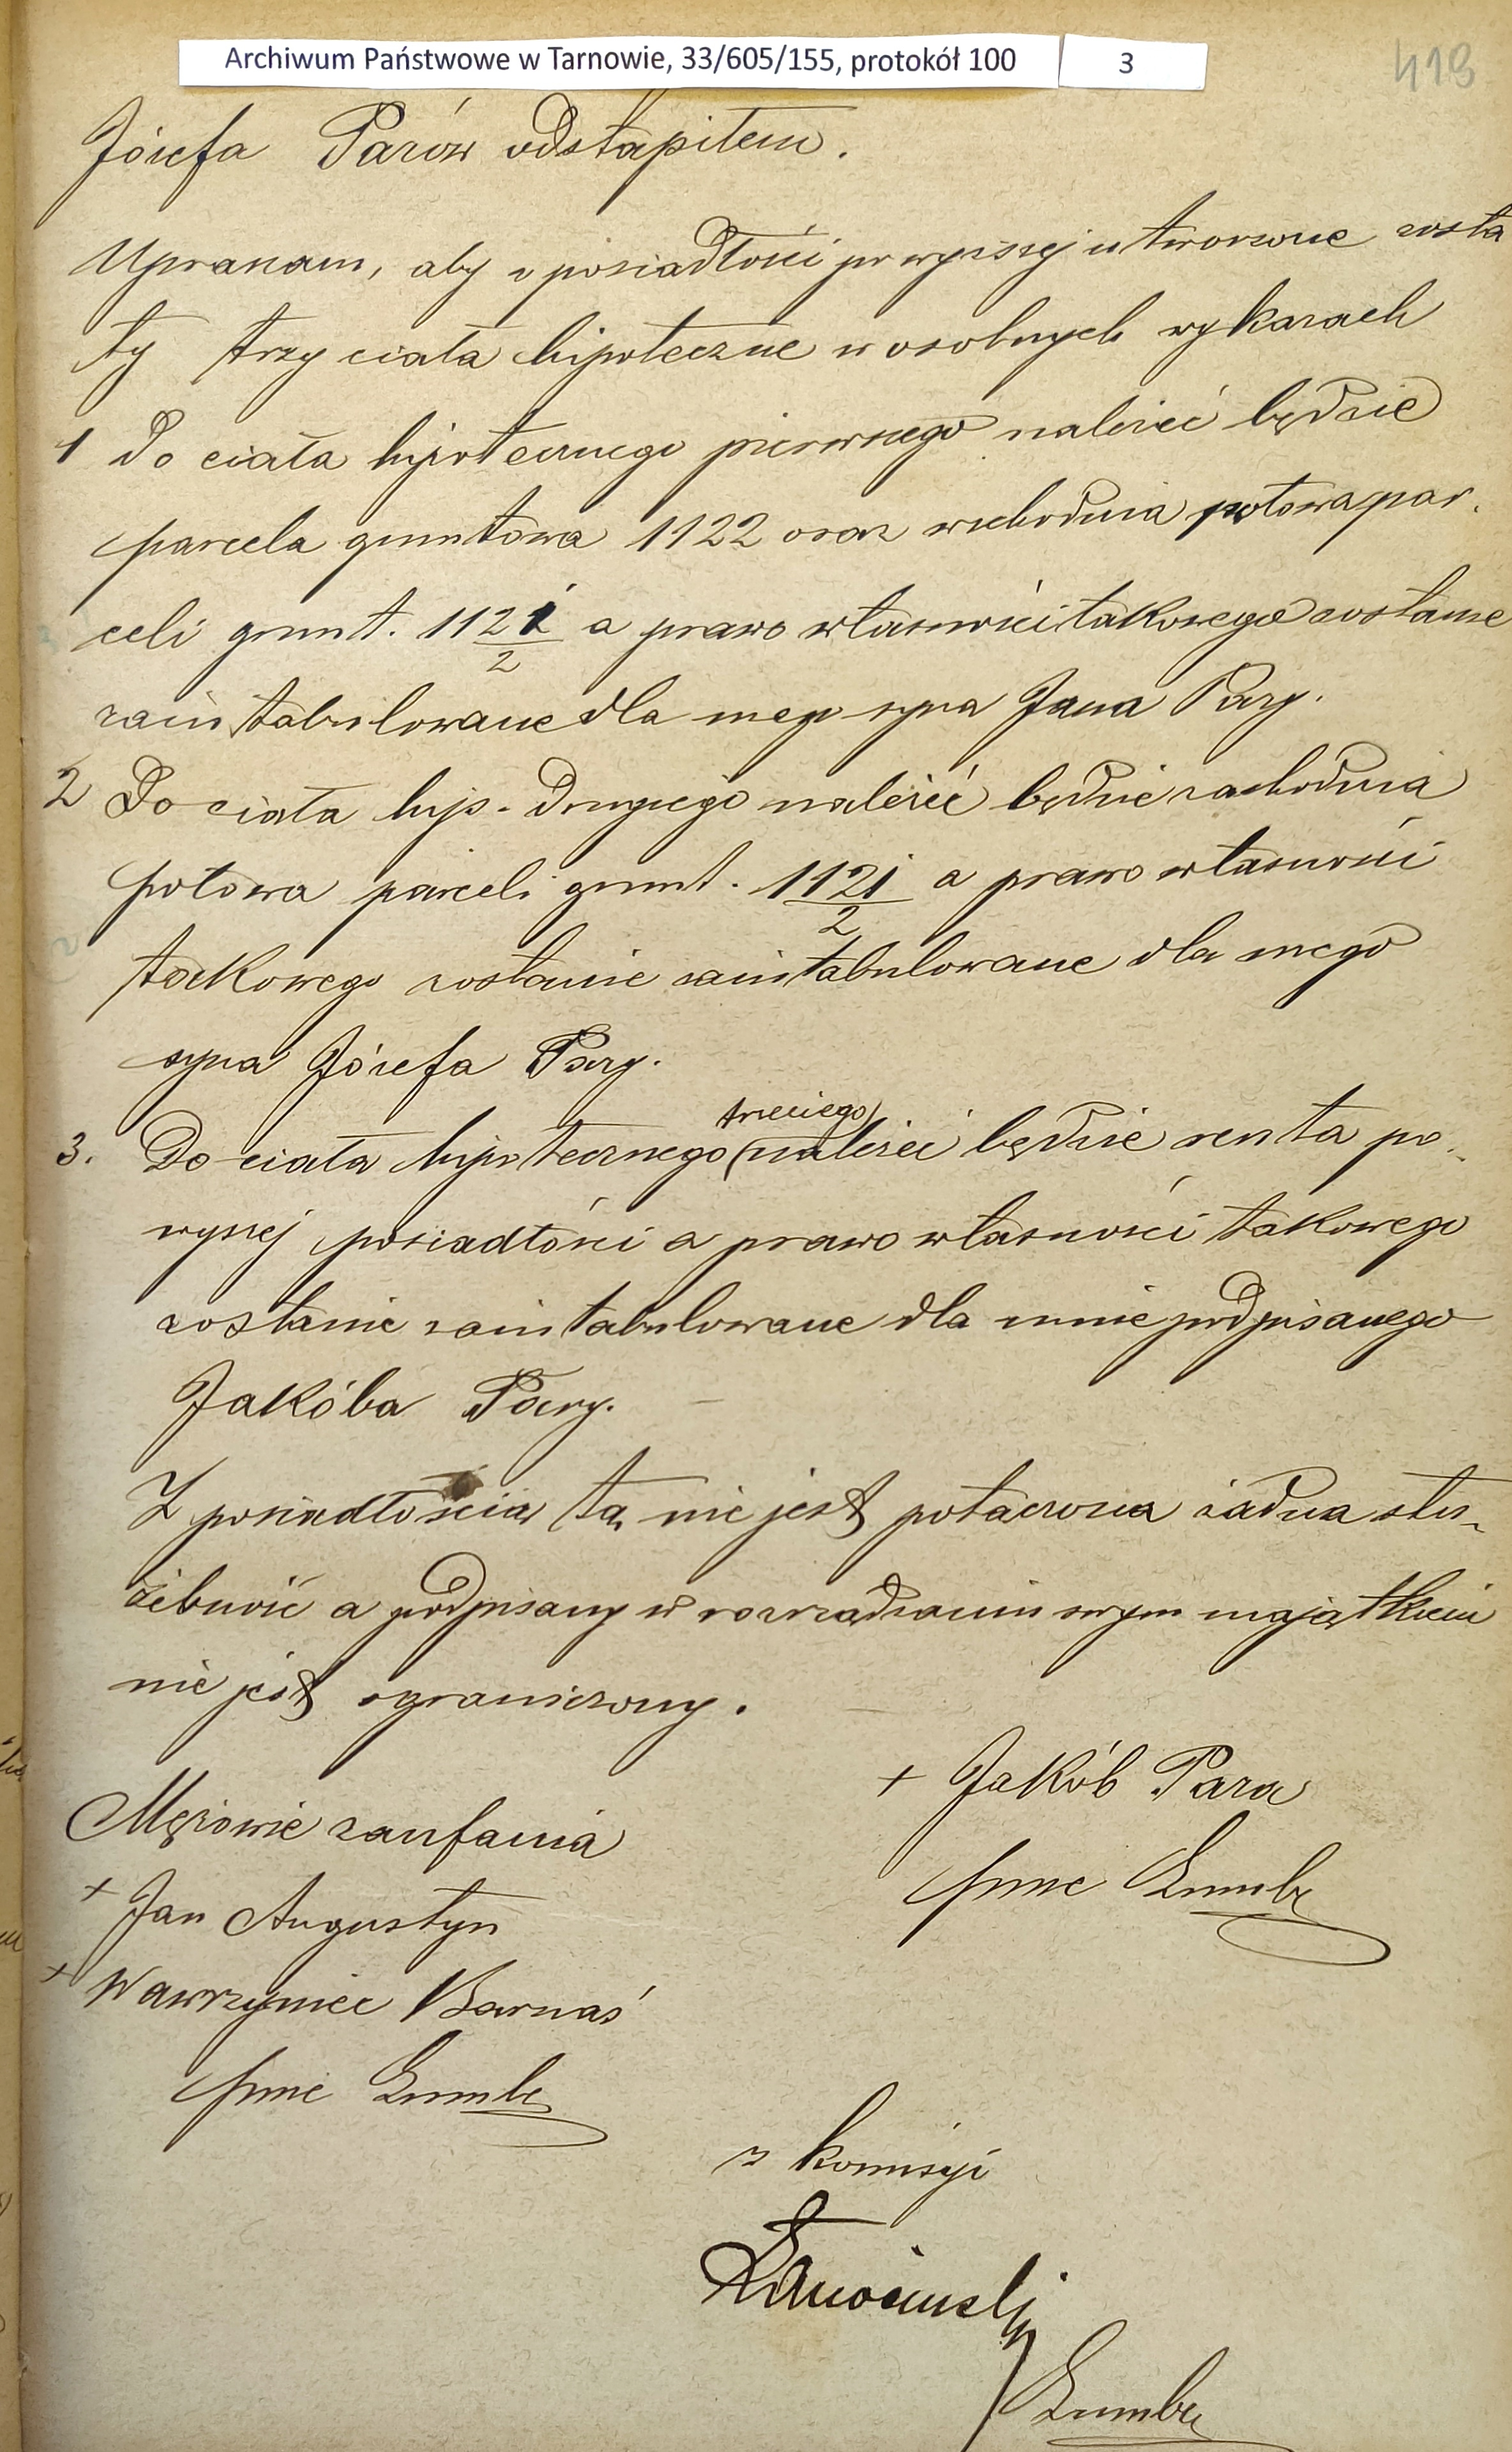 Archiwum Państwowe w Tarnowie, 33/605/155, protokół 100 3
418
Józefa Parów odstąpiłem.
Upraszam, aby z posiadłości powyższej utworzone zosta
ły trzy ciała hipoteczne w osobnych wykazach
1 Do ciała hipotecznego pierwszego należeć będzie
parcela gruntowa 1122 oraz wschodnia połowa par.
celi grunt. 1121/2 a prawo własności takowego zostanie
zaintabulowane dla mego syna Jana Pary.
2 Do ciała hip. drugiego należeć będzie zachodnia
połowa parceli grunt. 1121/2 a prawo własności
takowego zostanie zaintabulowane dla mego
syna Józefa Pary.
trzeciego
3. Do ciała hipotecznego należeć będzie reszta po-
wyższej posiadłości a prawo własności takowego
zostanie zaintabulowane dla mnie podpisanego
Jakóba Pary.
Z posiadłością tą nie jest połączona żadna słu-
żebność a podpisany w rozrządzaniu swym majątkiem
nie jest ograniczony.
+ Jakób Para
Mężowie zaufania
+ Jan Augustyn
+ Wawrzyniec Barnaś
z komisyi